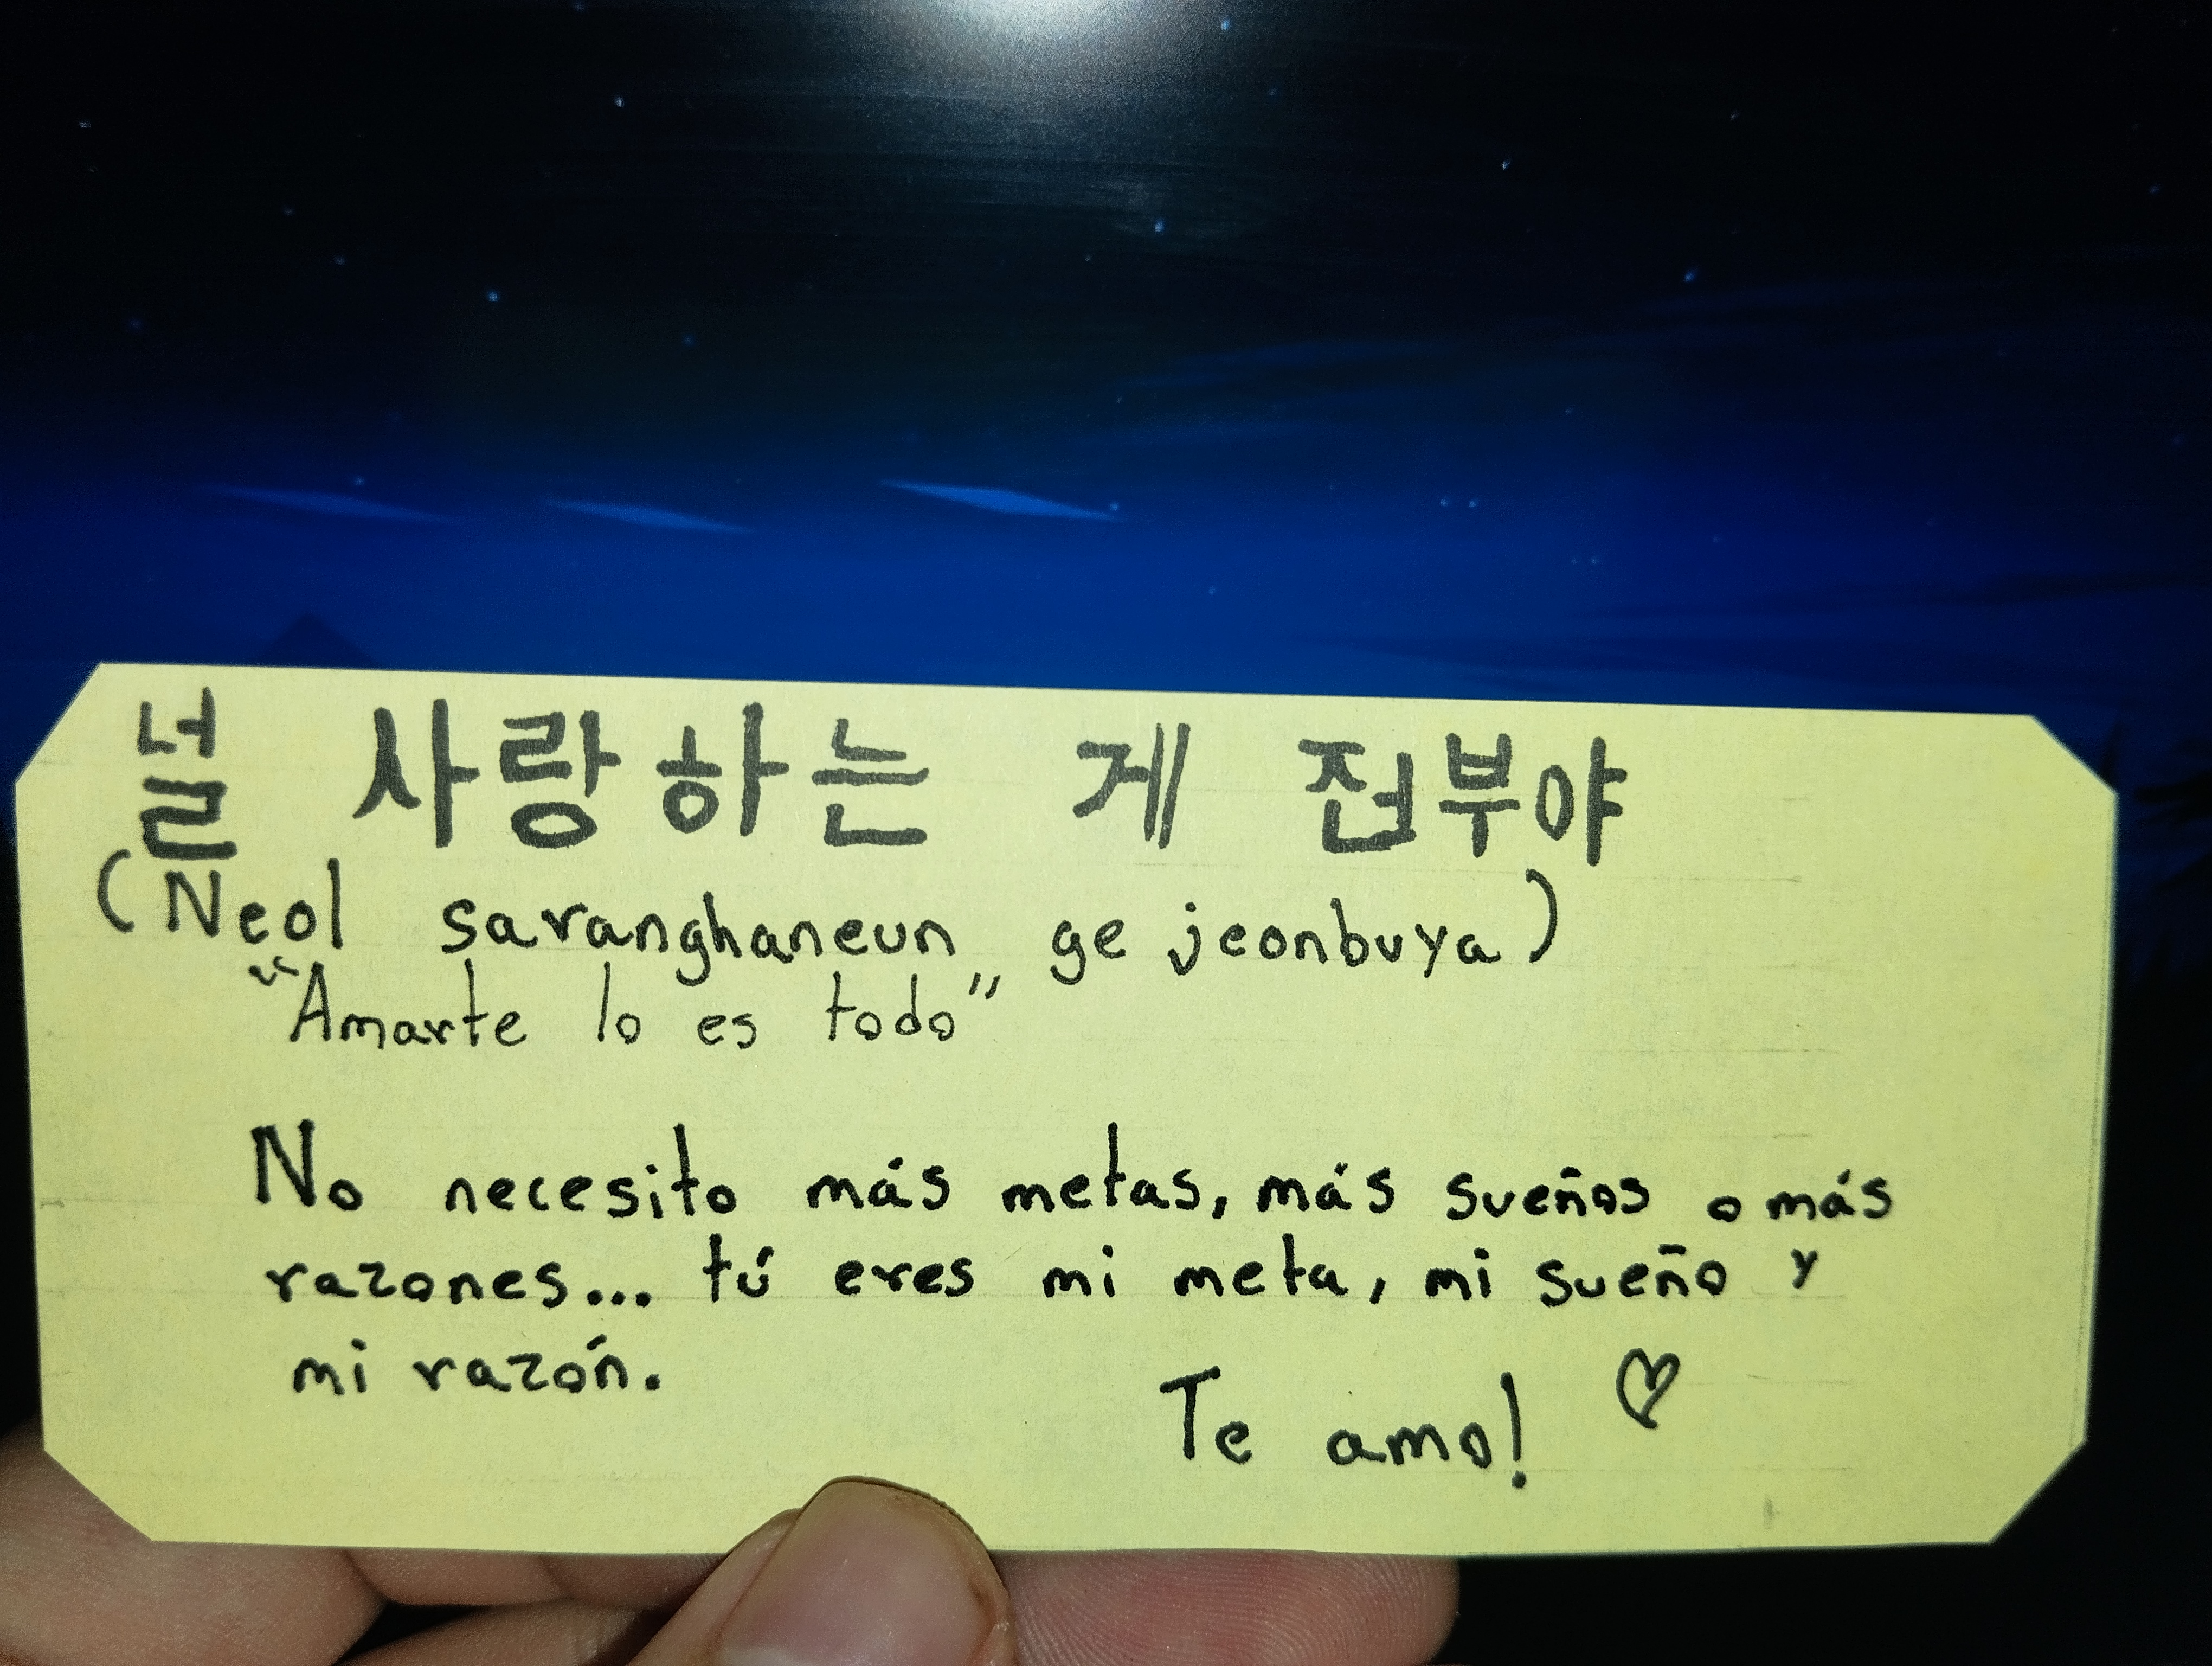 널 사랑하는 게 전부야
(Neol saranghaneun ge jeonbuya)
“Amarte lo es todo”
No necesito más metas, más sueños o más
razones... tú eres mi meta, mi sueño y
mi razón.
Te amo! ♡